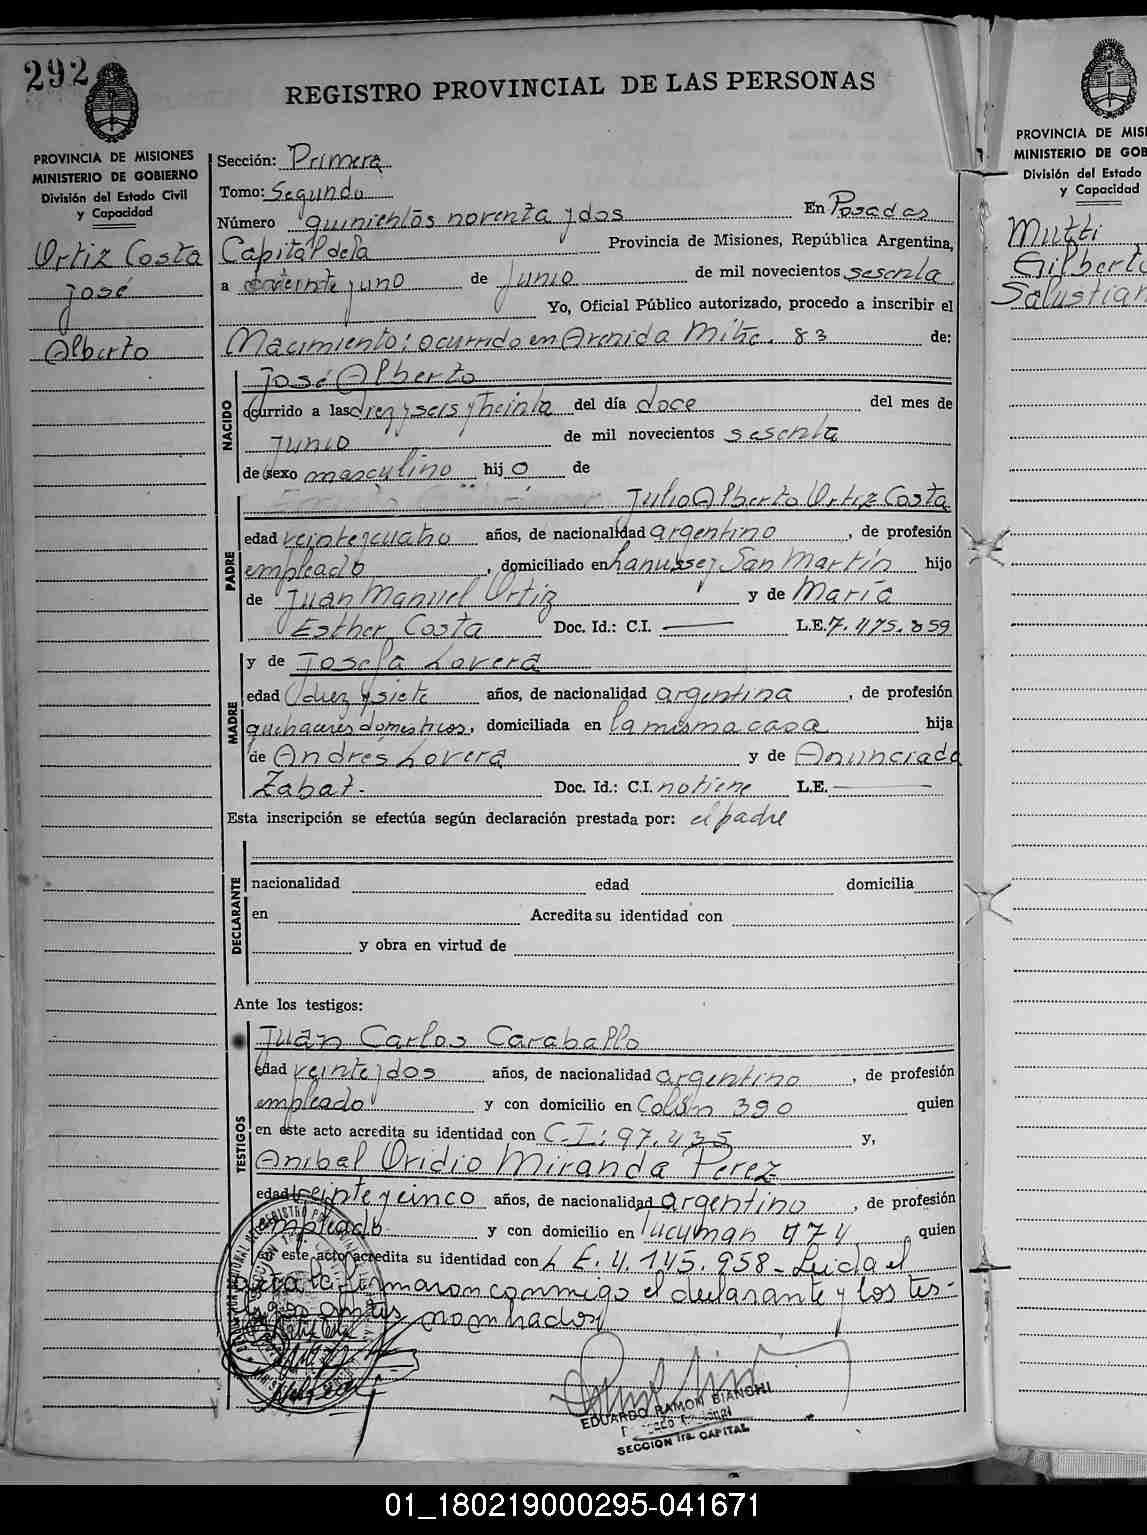 292
REGISTRO PROVINCIAL DE LAS PERSONAS
PROVINCIA DE MISIONES
MINISTERIO DE GOBIERNO
División del Estado Civil
y Capacidad
Ortiz Costa
José
Alberto
Sección: Primera
Tomo: Segundo
Número quinientos noventa y dos En Posadas
Capital de la Provincia de Misiones, República Argentina,
a veinte y uno de Junio de mil novecientos sesenta
Yo, Oficial Público autorizado, procedo a inscribir el
Nacimiento: ocurrido en Avenida Mitre. 83 de:
NACIDO
José Alberto
ocurrido a las diez y seis y treinta del día doce del mes de
Junio de mil novecientos sesenta
de sexo masculino hijo de
PADRE
Julio Alberto Ortiz Costa
edad veinte y cuatro años, de nacionalidad argentino, de profesión
empleado, domiciliado en Lanusse y San Martín hijo
de Juan Manuel Ortiz y de María
Esther Costa Doc. Id.: C.I. — L.E. 7.475.859
MADRE
y de Josefa Lovera
edad diez y siete años, de nacionalidad argentina, de profesión
quehaceres domesticos, domiciliada en la misma casa hija
de Andrés Lovera y de Anunciada
Zabat. Doc. Id.: C.I. no tiene L.E. —
Esta inscripción se efectúa según declaración prestada por: el padre
DECLARANTE
nacionalidad edad domicilia
en Acredita su identidad con
y obra en virtud de
Ante los testigos:
TESTIGOS
Juan Carlos Caraballo
edad veinte y dos años, de nacionalidad argentino, de profesión
empleado y con domicilio en Colón 390 quien
en este acto acredita su identidad con C.I: 97.435 y,
Anibal Ovidio Miranda Perez
edad veinte y cinco años, de nacionalidad argentino, de profesión
empleado y con domicilio en Tucuman 474 quien
en este acto acredita su identidad con L E. 4.145.958 - Leida el
acta la firmaron conmigo el declarante y los tes-
tigos antes nombrados
EDUARDO RAMON BIANCHI
SECCION 1ra. CAPITAL
PROVINCIA DE MISI
MINISTERIO DE GOB
División del Estado
y Capacidad
Mutti
Gilberto
Salustian
01_180219000295-041671